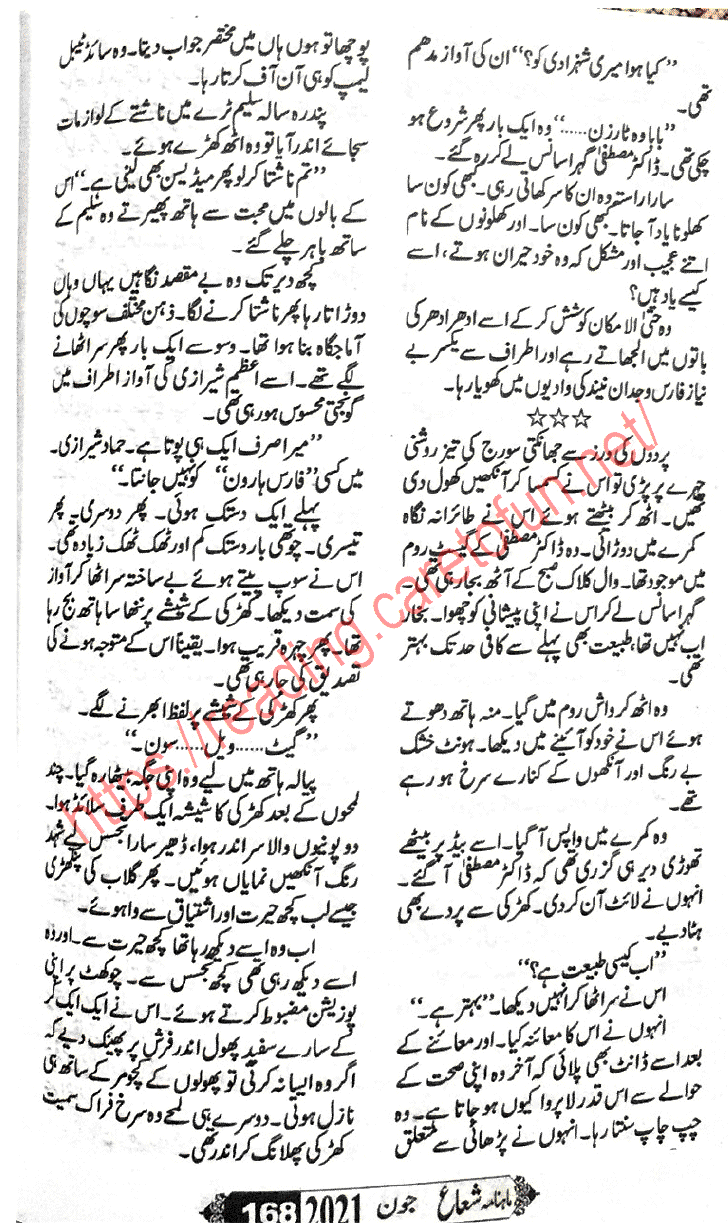 ”کیا ہوا میری شہزادی کو؟“ ان کی آواز مدھم
تھی۔
”بابا وہ ٹارزن......“ وہ ایک بار پھر شروع ہو
چکی تھی۔ ڈاکٹر مصطفیٰ گہرا سانس لے کر رہ گئے۔
سارا راستہ وہ ان کا سر کھاتی رہی۔ کبھی کون سا
کھلونا یاد آ جاتا۔ کبھی کون سا۔ اور کھلونوں کے نام
اتنے عجیب اور مشکل کہ وہ خود حیران ہوتے، اسے
کیسے یاد ہیں؟
وہ حتیٰ الامکان کوشش کر کے اسے ادھر ادھر کی
باتوں میں الجھاتے رہے اور اطراف سے یکسر بے
نیاز فارس وجدان نیند کی وادیوں میں کھویا رہا۔
☆☆☆
پردوں کی درز سے جھانکتی سورج کی تیز روشنی
چہرے پر پڑی تو اس نے کسمسا کر آنکھیں کھول دی
تھیں۔ اٹھ کر بیٹھتے ہوئے اس نے طائرانہ نگاہ
کمرے میں دوڑائی۔ وہ ڈاکٹر مصطفیٰ کے گیسٹ روم
میں موجود تھا۔ وال کلاک صبح کے آٹھ بجا رہی تھی۔
گہرا سانس لے کر اس نے اپنی پیشانی کو چھوا۔ بخار
اب نہیں تھا، طبیعت بھی پہلے سے کافی حد تک بہتر
تھی۔
وہ اٹھ کر واش روم میں گیا۔ منہ ہاتھ دھوتے
ہوئے اس نے خود کو آئینے میں دیکھا۔ ہونٹ خشک
بے رنگ اور آنکھوں کے کنارے سرخ ہو رہے
تھے۔
وہ کمرے میں واپس آ گیا۔ اسے بیڈ پر بیٹھے
تھوڑی دیر ہی گزری تھی کہ ڈاکٹر مصطفیٰ آ گئے۔
انہوں نے لائٹ آن کر دی۔ کھڑکی سے پردے بھی
ہٹا دیے۔
”اب کیسی طبیعت ہے؟“
اس نے سر اٹھا کر انہیں دیکھا۔ ”بہتر ہے۔“
انہوں نے اس کا معائنہ کیا۔ اور معائنے کے
بعد اسے ڈانٹ بھی پلائی کہ آخر وہ اپنی صحت کے
حوالے سے اس قدر لاپروا کیوں ہو جاتا ہے۔ وہ
چپ چاپ سنتا رہا۔ انہوں نے پڑھائی سے متعلق
پوچھا تو ہوں ہاں میں مختصر جواب دیتا۔ وہ سائڈ ٹیبل
لیمپ کو ہی آن آف کرتا رہا۔
پندرہ سالہ سلیم ٹرے میں ناشتے کے لوازمات
سجائے اندر آیا تو وہ اٹھ کھڑے ہوئے۔
”تم ناشتا کر لو پھر میڈیسن بھی لینی ہے۔“ اس
کے بالوں میں محبت سے ہاتھ پھیرتے وہ سلیم کے
ساتھ باہر چلے گئے۔
کچھ دیر تک وہ بے مقصد نگاہیں یہاں وہاں
دوڑاتا رہا پھر ناشتا کرنے لگا۔ ذہن مختلف سوچوں کی
آماجگاہ بنا ہوا تھا۔ وسوسے ایک بار پھر سر اٹھانے
لگے تھے۔ اسے اعظم شیرازی کی آواز اطراف میں
گونجتی محسوس ہو رہی تھی۔
”میرا صرف ایک ہی پوتا ہے۔ حماد شیرازی۔
میں کسی ”فارس ہارون“ کو نہیں جانتا۔“
پہلے ایک دستک ہوئی۔ پھر دوسری۔ پھر
تیسری۔ چوتھی بار دستک کم اور ٹھک ٹھک زیادہ تھی۔
اس نے سوپ پیتے ہوئے بے ساختہ سر اٹھا کر آواز
کی سمت دیکھا۔ کھڑکی کے شیشے پر ننھا سا ہاتھ بج رہا
تھا۔ پھر چہرہ قریب ہوا۔ یقیناً اس کے متوجہ ہونے کی
تصدیق کی جا رہی تھی۔
پھر کھڑکی کے شیشے پر لفظ ابھرنے لگے۔
”گیٹ......ویل......سون۔“
پیالہ ہاتھ میں لیے وہ اپنی جگہ بیٹھا رہ گیا۔ چند
لمحوں کے بعد کھڑکی کا شیشہ ایک طرف سلائڈ ہوا۔
دو پونیوں والا سر اندر ہوا، ڈھیر سارا تجسس لیے شہد
رنگ آنکھیں نمایاں ہوئیں۔ پھر گلاب کی پنکھڑی
جیسے لب کچھ حیرت اور اشتیاق سے وا ہوئے۔
اب وہ اسے دیکھ رہا تھا کچھ حیرت سے۔ اور وہ
اسے دیکھ رہی تھی کچھ تجسس سے۔ چوکھٹ پر اپنی
پوزیشن مضبوط کرتے ہوئے۔ اس نے ایک ایک کر
کے سارے سفید پھول اندر فرش پر پھینک دیے کہ
اگر وہ ایسا نہ کرتی تو پھولوں کے کچومر کے ساتھ ہی
نازل ہوتی۔ دوسرے ہی لمحے وہ سرخ فراک سمیت
کھڑکی پھلانگ کر اندر تھی۔
ماہنامہ شعاع جون 2021 168
https://reading.caretofun.net/